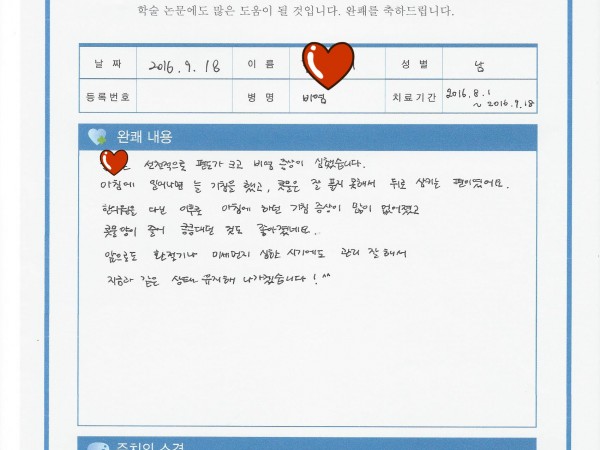 학술 논문에도 많은 도움이 될 것입니다. 완쾌를 축하드립니다.
날 짜 2016. 9. 18 이 름 성 별 남
등록번호 병 명 비염 치료기간 2016. 8. 1 ~ 2016. 9. 18
완쾌 내용
선천적으로 편도가 크고 비염 증상이 심했습니다.
아침에 일어나면 늘 기침을 했고, 콧물은 잘 풀지 못해서 뒤로 삼키는 편이였어요.
한의원을 다닌 이후로 아침에 하던 기침 증상이 많이 없어졌고
콧물양이 줄어 킁킁대던 것도 좋아졌네요.
앞으로도 환절기나 미세먼지 심한 시기에도 관리 잘 해서
지금과 같은 상태 유지해 나가겠습니다! ^^
주치의 소견